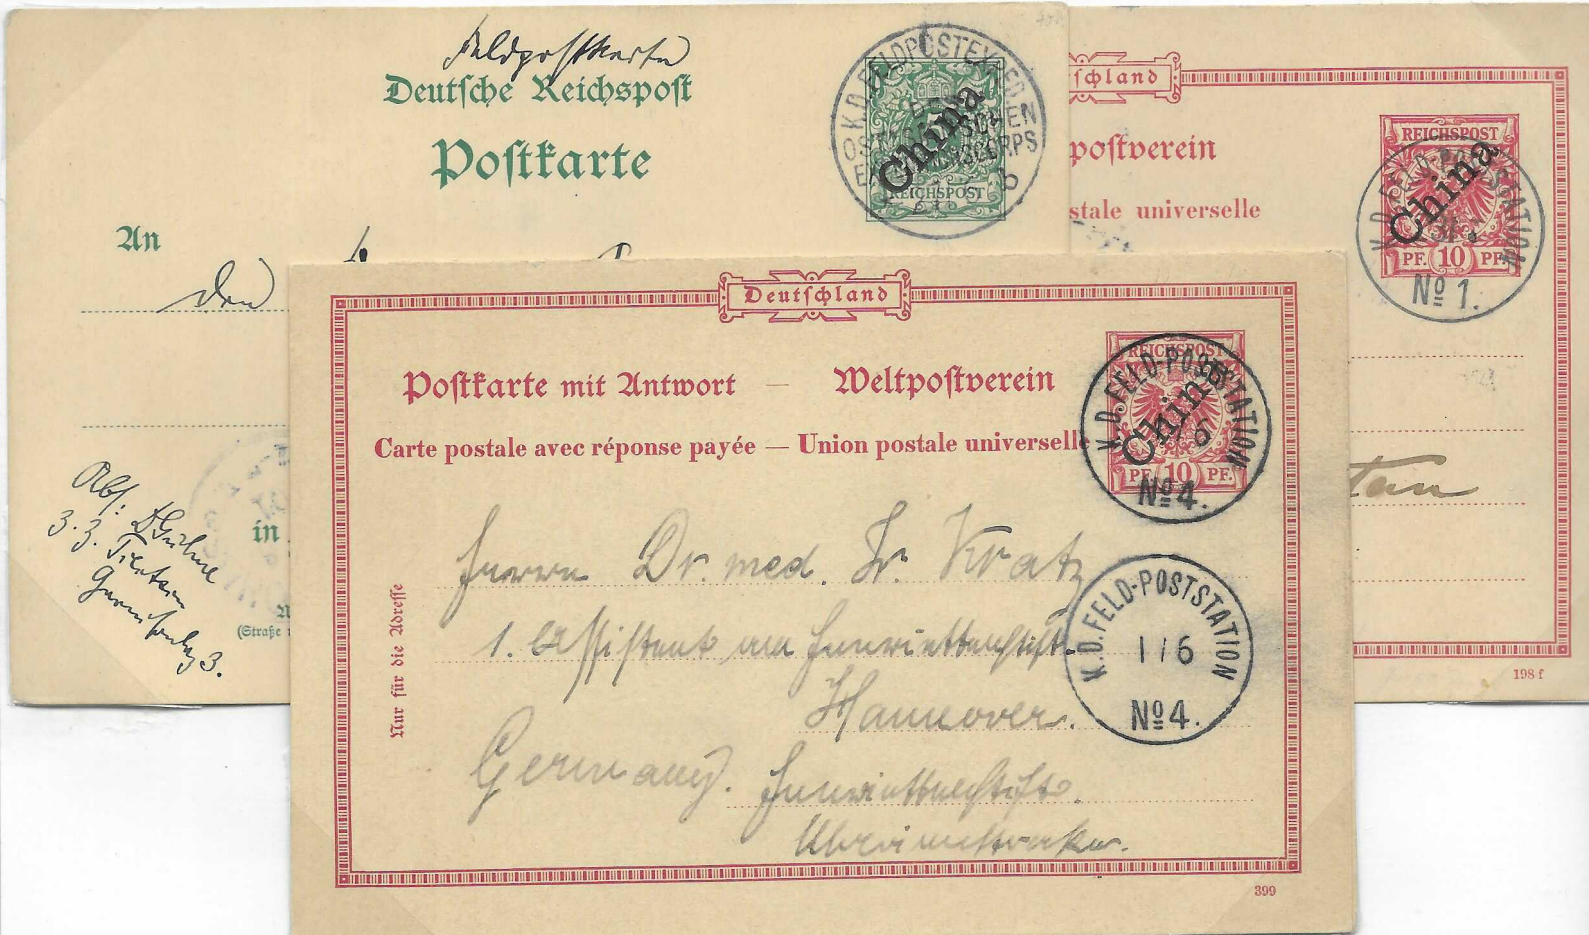 Feldpostkarte
Deutsche Reichspost
Postkarte
An
den
K.D. FELDPOSTEXPED.
OSTASIATISCHEN
EXPEDITIONSCORPS
China
REICHSPOST
Abs:
3. Z. Tientsin
3.
in
(Straße
schland
postverein
stale universelle
REICHSPOST
China
PF. 10 PF.
K.D. FELD-POSTSTATION
31/
No 1.
198 f
Deutschland
Postkarte mit Antwort — Weltpostverein
Carte postale avec réponse payée — Union postale universelle
REICHSPOST
China
PF. 10 PF.
K.D. FELD-POSTSTATION
6
No 4.
Nur für die Adresse
Herrn Dr. med. Fr. Kratz
1. Assistent am Henriettenstift.
Hannover.
Germany. Henriettenstift.
K.D. FELD-POSTSTATION
1/6
No 4.
399